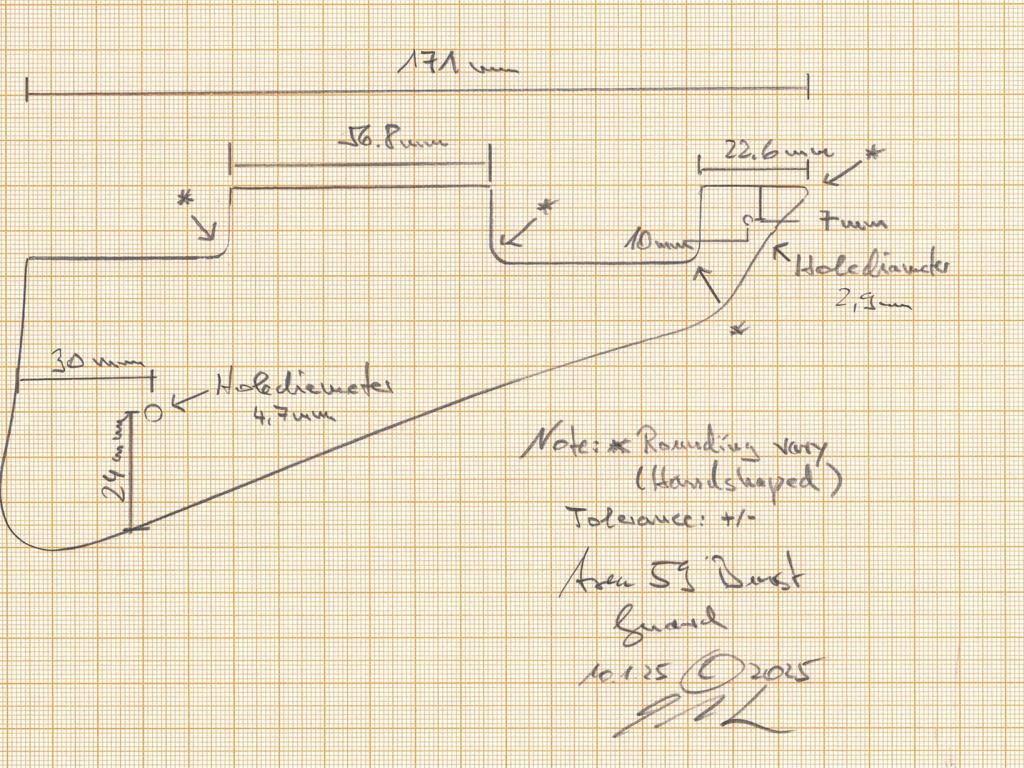 171 mm
56.8mm
22.6 mm *
*
*
7mm
10mm
Holediameter
2,9mm
*
30 mm
Holediameter
4,7mm
24 mm
Note: * Rounding vary
(Handshaped)
Tolerance: +/-
Area 59 Dust
Guard
10.1.25 © 2025